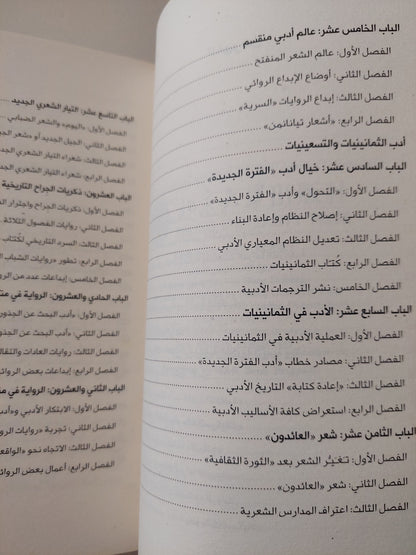 الباب الخامس عشر: عالم أدبي منقسم
الفصل الأول: عالم الشعر المنفتح
الفصل الثاني: أوضاع الإبداع الروائي
الفصل الثالث: إبداع الروايات «السرية»
الفصل الرابع: «أشعار تيانانمن»
أدب الثمانينيات والتسعينيات
الباب السادس عشر: خيال أدب «الفترة الجديدة»
الفصل الأول: «التحول» وأدب «الفترة الجديدة»
الفصل الثاني: إصلاح النظام وإعادة البناء
الفصل الثالث: تعديل النظام المعياري الأدبي
الفصل الرابع: كُتاب الثمانينيات
الفصل الخامس: نشر الترجمات الأدبية
الباب السابع عشر: الأدب في الثمانينيات
الفصل الأول: العملية الأدبية في الثمانينيات
الفصل الثاني: مصادر خطاب «أدب الفترة الجديدة»
الفصل الثالث: «إعادة كتابة» التاريخ الأدبي
الفصل الرابع: استعراض كافة الأساليب الأدبية
الباب الثامن عشر: شعر «العائدون»
الفصل الأول: تغيُّر الشعر بعد «الثورة الثقافية»
الفصل الثاني: شعر «العائدون»
الفصل الثالث: اعتراف المدارس الشعرية
الباب التاسع عشر: التيار الشعري الجديد
الفصل الأول: «اليوم» والشعر الضبابي
الفصل الثاني: الجيل الجديد أو «شعر الجيل
الفصل الثالث: شعراء التيار الشعري الجديد
الفصل الرابع: شعراء التيار الشعري الجد
الباب العشرون: ذكريات الجراح التاريخية
الفصل الأول: ذكريات الجراح واجترار ال
الفصل الثاني: روايات الفصول الثلاثة
الفصل الثالث: السرد التاريخي لكُتاب
الفصل الرابع: تطور «روايات الشباب ال
الفصل الخامس: إبداعات عدد من الروا
الباب الحادي والعشرون: الرواية في منت
الفصل الأول: «أدب البحث عن الجذور
الفصل الثاني: أدب البحث عن الجذو
الفصل الثالث: روايات العادات والتقال
الفصل الرابع: إبداعات بعض الروائ
الباب الثاني والعشرون: الرواية في من
الفصل الأول: الابتكار الأدبي و«أدب
الفصل الثاني: تجربة «روايات الرو
الفصل الثالث: الاتجاه نحو «الواقعي
الفصل الرابع: أعمال بعض الروائ